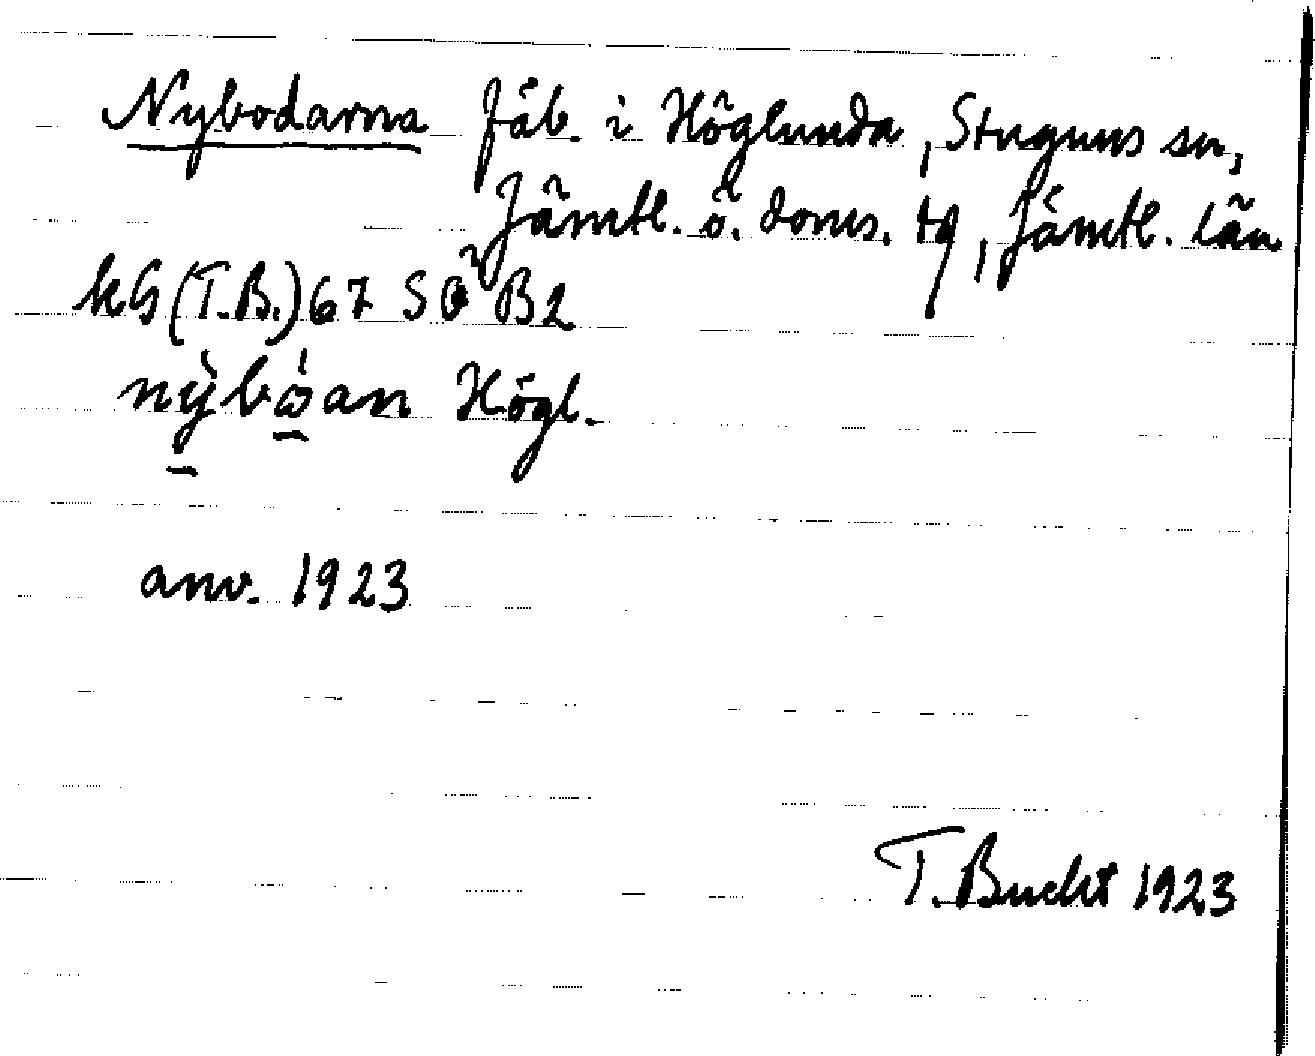 Nybodarna fäb. i Höglunda, Stuguns sn,
Jämtl. ö. doms. tg, Jämtl. län
kG (T.B.) 67 SÖ B2
nỳbὼan Högl.
anv. 1923
T. Bucht 1923